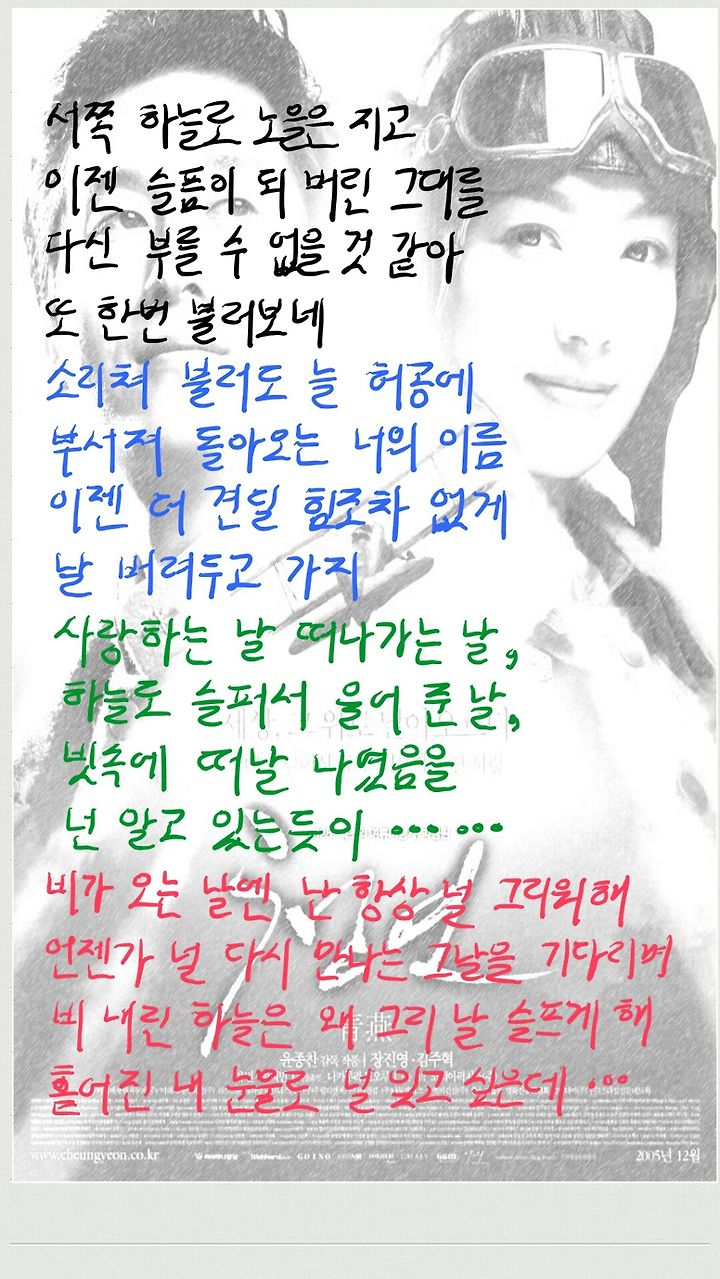 서쪽 하늘로 노을은 지고
이젠 슬픔이 되 버린 그대를
다신 부를 수 없을 것 같아
또 한번 불러보네
소리쳐 불러도 늘 허공에
부서져 돌아오는 너의 이름
이젠 더 견딜 힘조차 없게
날 버려두고 가지
사랑하는 날 떠나가는 날,
하늘로 슬퍼서 울어 준 날,
빗속에 떠날 나였음을
넌 알고 있는듯이 ••• •••
비가 오는 날엔 난 항상 널 그리워해
언젠가 널 다시 만나는 그날을 기다리며
비 내린 하늘은 왜 그리 날 슬프게 해
흩어진 내 눈물로 널 잊고 싶은데 •••
청연
靑燕
윤종찬 감독 작품 | 장진영 · 김주혁
www.cheungyeon.co.kr
2005년 12월